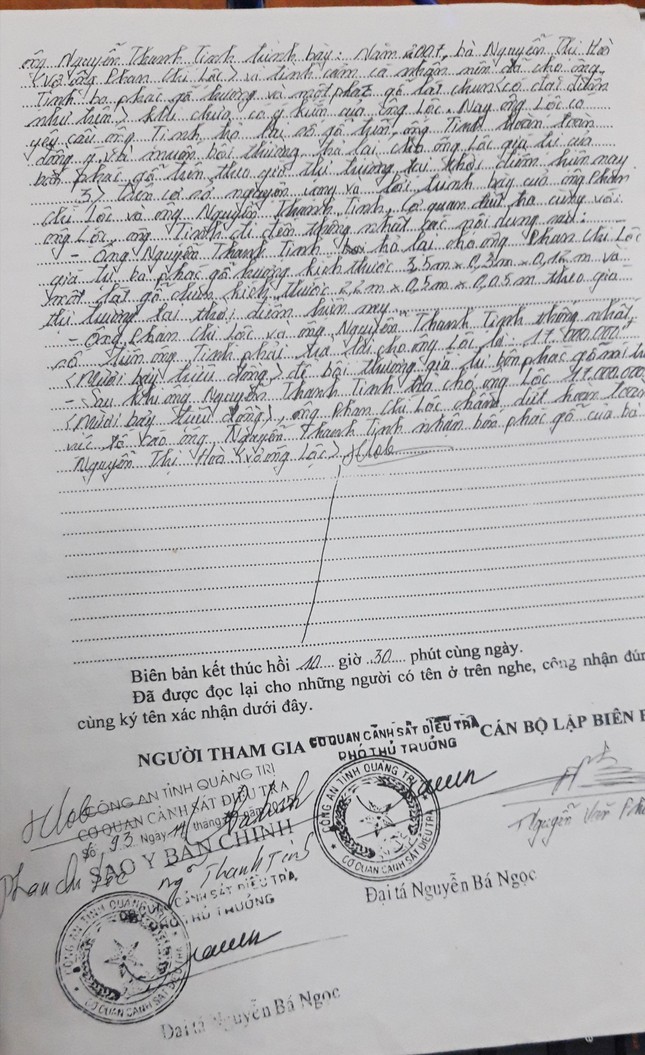 ông Nguyễn Thanh Tịnh trình bày: Năm 2007, bà Nguyễn Thị Hoà
(vợ ông Phan Chí Lộc) vì tình cảm cá nhân nên đã cho ông
Tịnh ba phác gỗ hường và một phác gỗ lát chun (có đặc điểm
như trên) khi chưa có ý kiến của ông Lộc. Nay ông Lộc có
yêu cầu ông Tịnh trả lại số gỗ trên, ông Tịnh hoàn toàn
đồng ý và muốn bồi thường, trả lại cho ông Lộc giá trị của
bốn phác gỗ trên theo giá thị trường tại thời điểm hiện nay
3) Trên cơ sở nguyện vọng và lời trình bày của ông Phan
Chí Lộc và ông Nguyễn Thanh Tịnh, Cơ quan điều tra cùng với
ông Lộc, ông Tịnh đi đến thống nhất các nội dung sau:
- Ông Nguyễn Thanh Tịnh trả lại cho ông Phan Chí Lộc
giá trị ba phác gỗ hường kích thước 3,5m x 0,3m x 0,12m và
một phác gỗ chun kích thước 2,2m x 0,5m x 0,05m theo giá
thị trường tại thời điểm hiện nay.
- Ông Phan Chí Lộc và ông Nguyễn Thanh Tịnh thống nhất
số tiền ông Tịnh phải trả lại cho ông Lộc là: 17.000.000đ
(Mười bảy triệu đồng) để bồi thường giá trị bốn phác gỗ nói
- Sau khi ông Nguyễn Thanh Tịnh trả cho ông Lộc 17.000.000
(Mười bảy triệu đồng), ông Phan Chí Lộc chấm dứt hoàn toàn
việc tố cáo ông Nguyễn Thanh Tịnh nhận bốn phác gỗ của bà
Nguyễn Thị Hoà (vợ ông Lộc).
Biên bản kết thúc hồi 10 giờ 30 phút cùng ngày.
Đã được đọc lại cho những người có tên ở trên nghe, công nhận đún
cùng ký tên xác nhận dưới đây.
NGƯỜI THAM GIA CƠ QUAN CẢNH SÁT ĐIỀU TRA CÁN BỘ LẬP BIÊN B
PHÓ THỦ TRƯỞNG
CÔNG AN TỈNH QUẢNG TRỊ
CƠ QUAN CẢNH SÁT ĐIỀU TRA
Số 93 Ngày tháng năm
SAO Y BẢN CHÍNH
CÔNG AN TỈNH QUẢNG TRỊ
CƠ QUAN CẢNH SÁT ĐIỀU TRA
Nguyễn Văn
Phan Chí Lộc Ng Thanh Tịnh
Đại tá Nguyễn Bá Ngọc
CẢNH SÁT ĐIỀU TRA
PHÓ THỦ TRƯỞNG
CÔNG AN TỈNH QUẢNG TRỊ
CƠ QUAN CẢNH SÁT ĐIỀU TRA
Đại tá Nguyễn Bá Ngọc